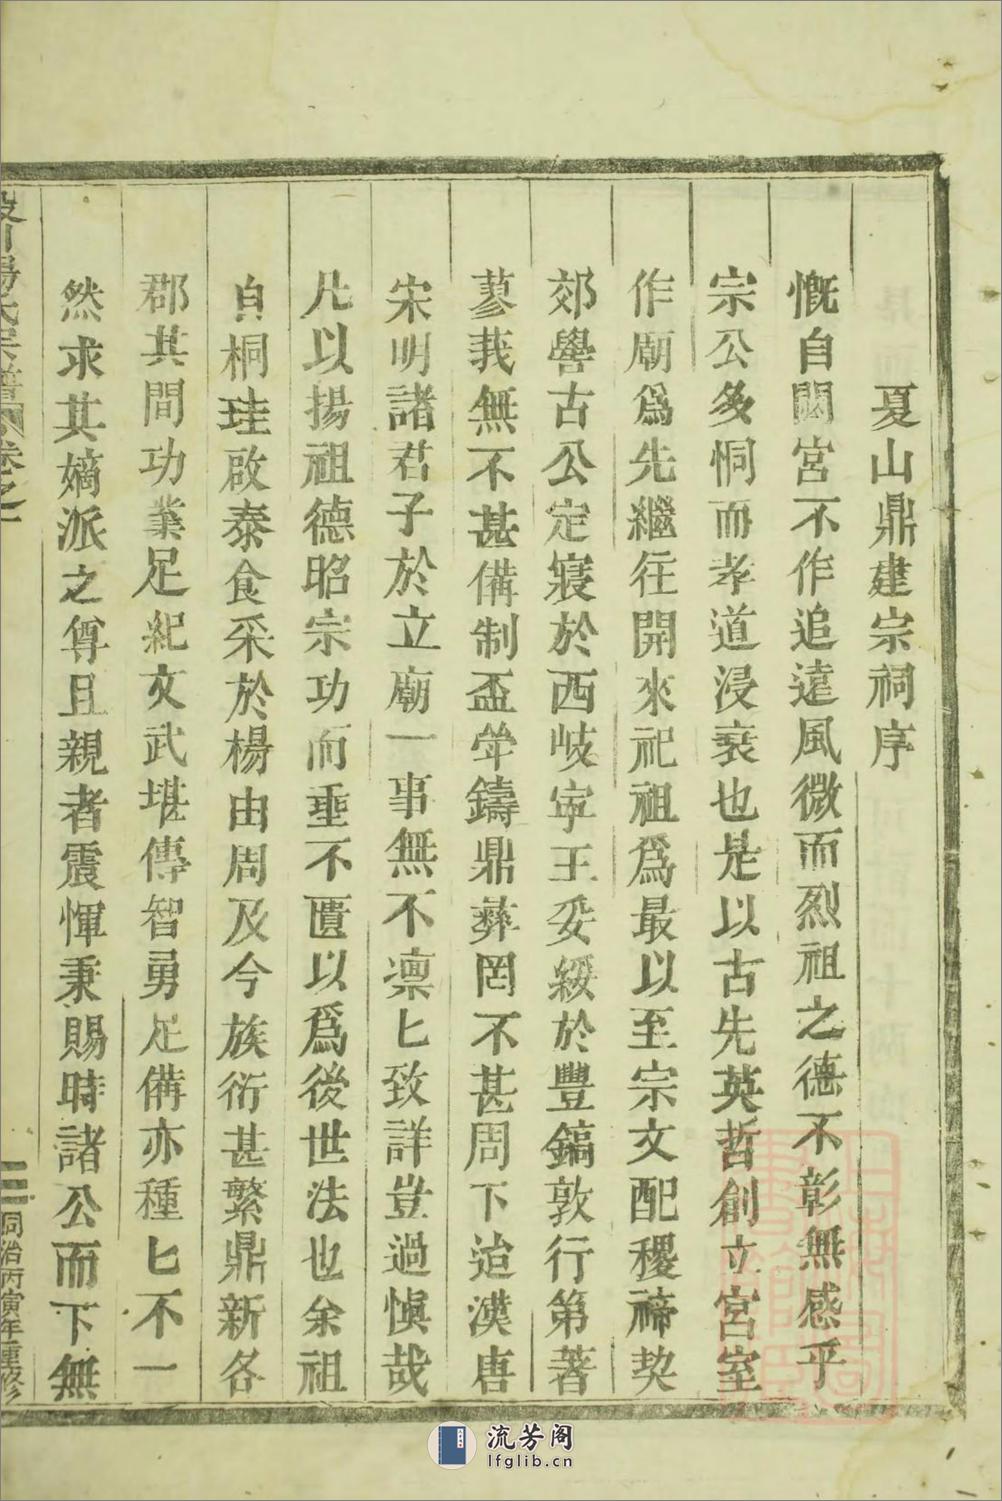 夏山鼎建宗祠序
慨自閟宮不作追遠風微而烈祖之德不彰無感乎
宗公多恫而孝道浸衰也是以古先英哲創立宮室
作廟爲先繼往開來祀祖爲最以至宗文配稷禘契
郊嚳古公定寢於西岐寕王妥綏於豐鎬敦行第著
蓼莪無不甚備制盃斚鑄鼎彝罔不甚周下迨漢唐
宋明諸君子於立廟一事無不凛匕致詳豈過慎哉
凡以揚祖德昭宗功而垂不匱以爲後世法也余祖
自桐珪啟泰食采於楊由周及今族衍甚繁鼎新各
郡其間功業足紀文武堪傳智勇足備亦種匕不一
然求其嫡派之尊且親者震惲秉賜時諸公而下無
楊氏宗譜 卷之一
三 同治丙寅年重修
流芳阁
lfglib.cn